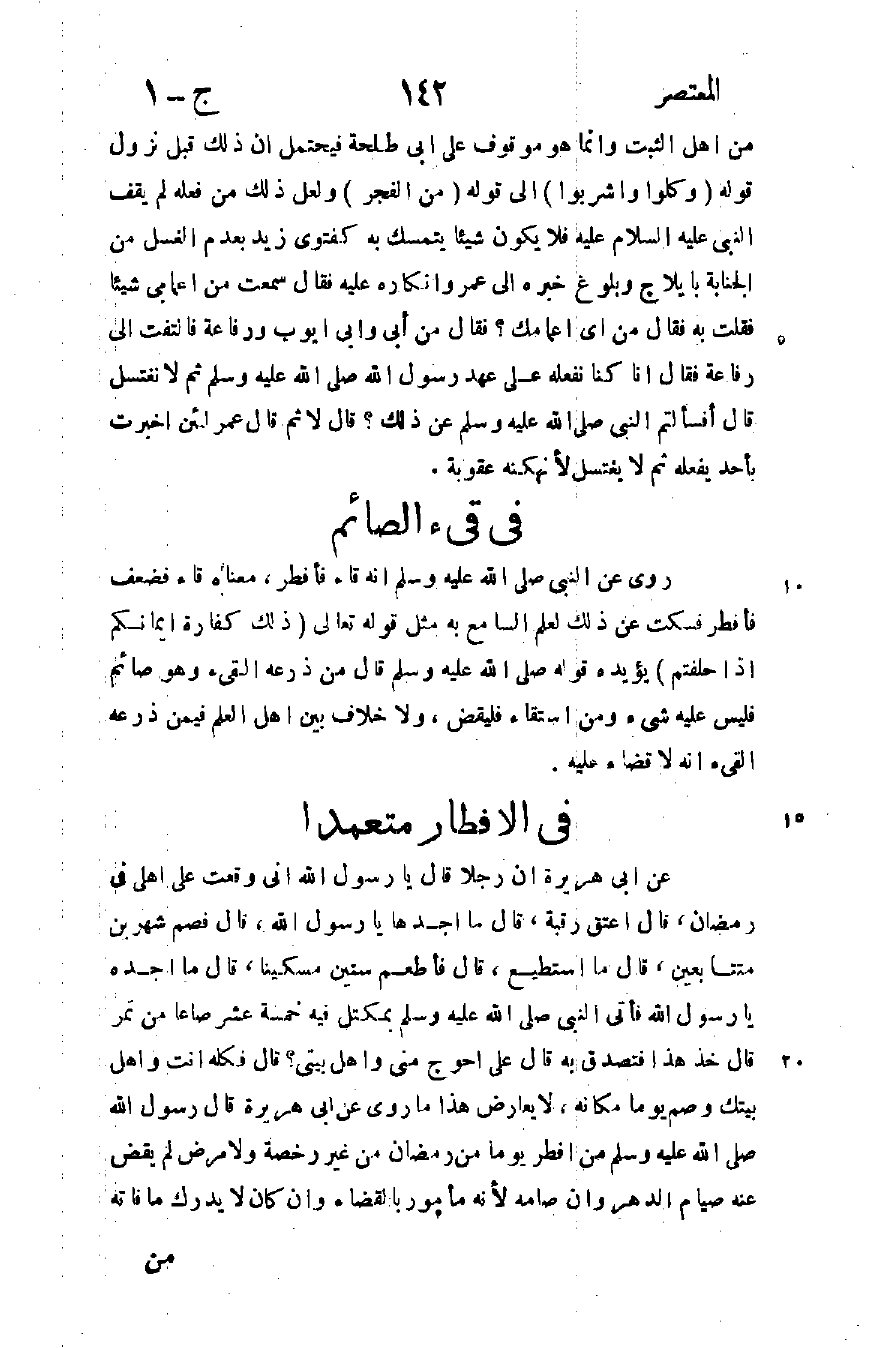 المعتصر ١٤٢ ج - ١
من اهل الثبت وانما هو موقوف على ابى طلحة فيحتمل ان ذلك قبل نزول
قوله ( وكلوا واشربوا ) الى قوله ( من الفجر ) ولعل ذلك من فعله لم يقف
النبى عليه السلام عليه فلا يكون شيئا يتمسك به كفتوى زيد بعدم الغسل من
الجنابة بايلاج وبلوغ خبره الى عمر وانكاره عليه فقال سمعت من اعمامى شيئا
فقلت به فقال من اى اعمامك ؟ فقال من أبى وابى ايوب ورفاعة فالتفت الى
٥
رفاعة فقال انا كنا نفعله عـلى عهد رسول الله صلى الله عليه وسلم ثم لا نغتسل
قال أفسألتم النبى صلى الله عليه وسلم عن ذلك ؟ قال لا ثم قال عمر لئن اخبرت
بأحد يفعله ثم لا يغتسل لأنهكنه عقوبة .
فى قىء الصائم
روى عن النبى صلى الله عليه وسلم انه قاء فأفطر ، معناه قاء فضعف
١٠
فأفطر فسكت عن ذلك لعلم السامع به مثل قوله تعالى ( ذلك كفارة ايمانـكم
اذا حلفتم ) يؤيده قوله صلى الله عليه وسلم قال من ذرعه القىء وهو صائم
فليس عليه شىء ومن استقاء فليقض ، ولا خلاف بين اهل العلم فيمن ذرعه
القىء انه لا قضاء عليه .
فى الافطار متعمدا
١٥
عن ابى هريرة ان رجلا قال يا رسول الله انى وقعت على اهلى فى
رمضان ، قال اعتق رقبة ، قال ما اجـدها يا رسول الله ، قال فصم شهرين
متتـابعين ، قال ما استطيـع ، قال فأطعـم ستين مسكينا ، قال ما اجـده
يا رسول الله فأتى النبى صلى الله عليه وسلم بمكتل فيه خمسة عشر صاعا من تمر
قال خذ هذا فتصدق به قال على احوج منى واهل بيتى ؟ قال فكله انت واهل
٢٠
بيتك وصم يوما مكانه ، لا يعارض هذا ما روى عن ابى هريرة قال رسول الله
صلى الله عليه وسلم من افطر يوما من رمضان من غير رخصة ولا مرض لم يقض
عنه صيام الدهر وان صامه لأنه مأمور بالقضاء وان كان لا يدرك ما فاته
من